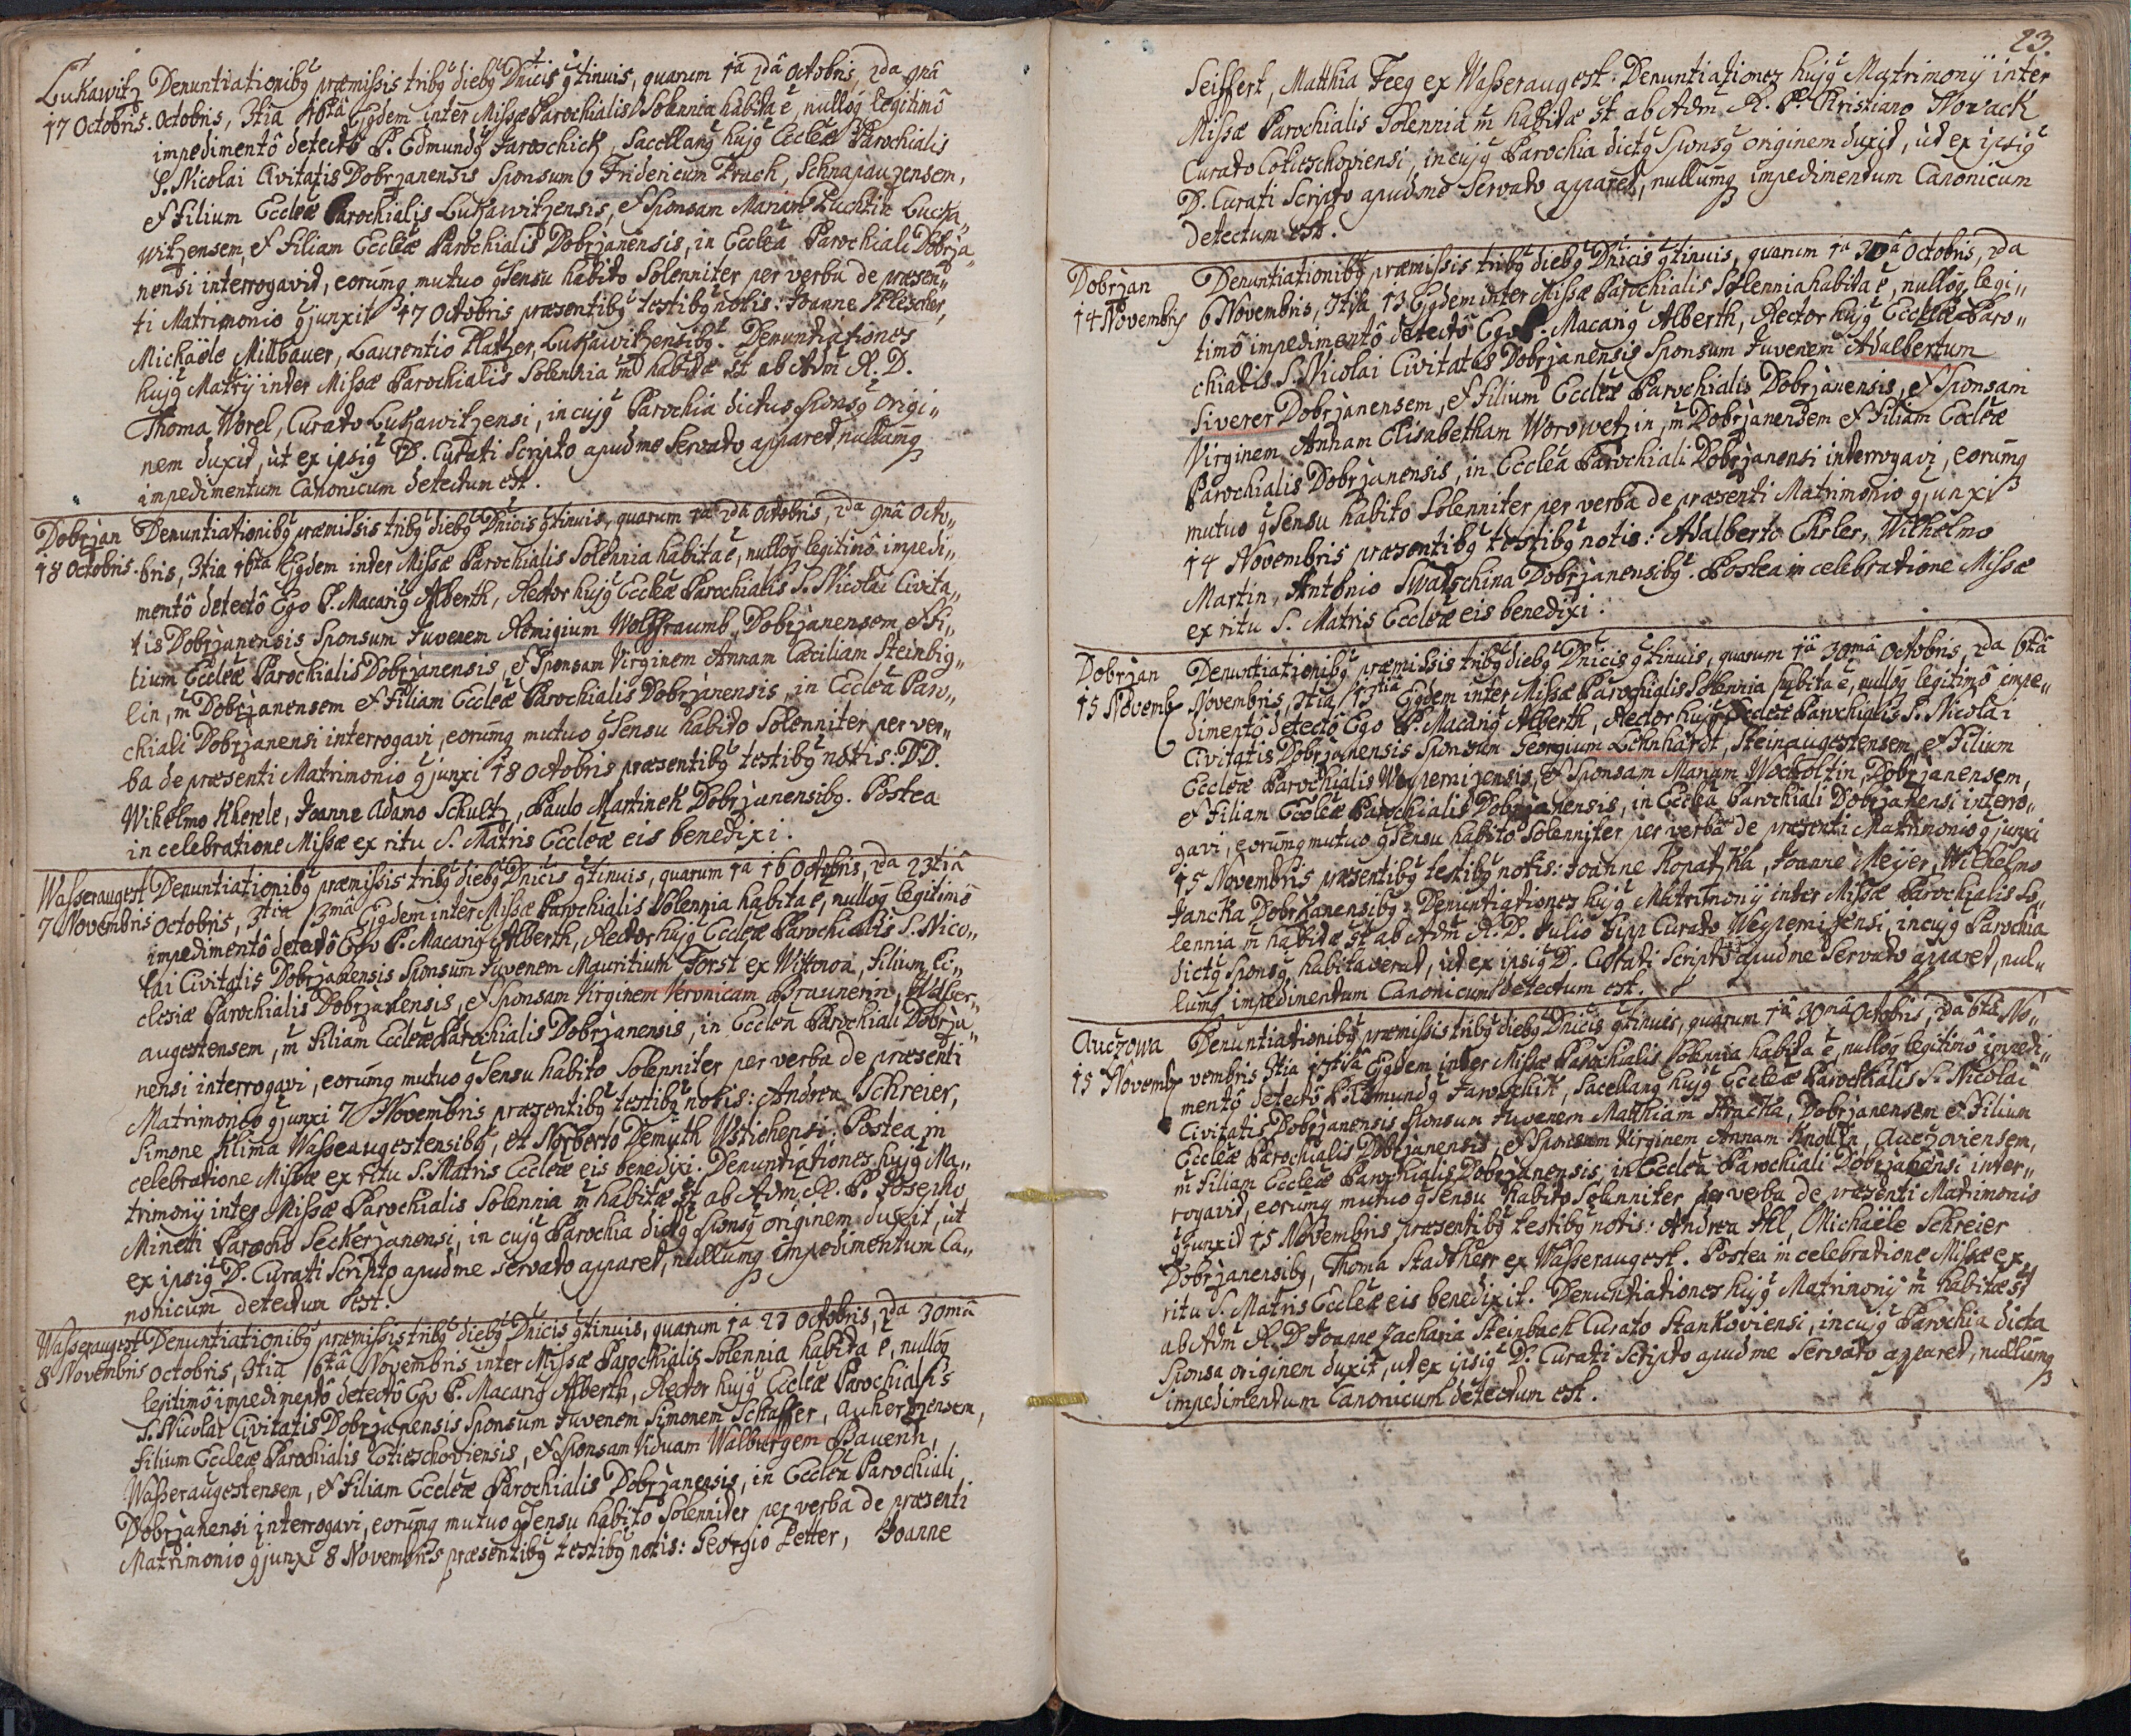 Lukawitz Denuntiationibq præmissis tribq diebq Dnicis qtinuis, quarum 1â 2dâ Octobris, 2da 9nâ
17 Octobris. Octobris, 3tia 16tâ Ejqdem inter Missæ Parochialis Solennia habita ê, nulloq legitimô
impedimentô detectô P. Edmundq Jaroschick, Sacellanq hujq Eccleæ Parochialis
S. Nicolai Civitatis Dobrzanensis Sponsum Fridericum Prach, Schnapauzensem,
et Filium Eccleæ Parochialis Lukawitzensis, et Sponsam Mariam Puchtin Lucka„
witzensem, et Filiam Eccleæ Parochialis Dobrzanensis, in Ecclea Parochiali Dobrza„
nensi interrogavit, eorumq mutuo qsensu habito Solenniter per verba de præsen„
ti Matrimonio qjunxit 17 Octobris præsentibq testibq notis: Joanne Plescher,
Michäele Millbauer, Laurentio Platzer, Lukawitzensibq. Denuntiationes
hujq Matrij inter Missæ Parochialis Solennia m̃ habitæ st ab Adm R. D.
Thoma Worel, Curato Lukawitzensi, in cujq Parochia dictus sponsq origi„
nem duxit, ut ex ipsiq D. Curati Scripto apud me Servato apparet, nullumq
impedimentum Canonicum detectum est.
Dobrzan Denuntiationibq præmissis tribq diebq Dnicis qtinuis, quarum 1a 2da Octobris, 2da 9nâ Octo„
18 Octobris. bris, 3tia 16ta Ejqdem inter Missæ Parochialis Solennia habita ê, nulloq legitimô impedi„
mentô detectô Ego P. Macariq Alberth, Rector hujq Eccleæ Parochialis S. Nicolai Civita„
tis Dobrzanensis Sponsum Juvenem Remigium Wolffraumb, Dobrzanensem, et Fi„
lium Eccleæ Parochialis Dobrzanensis, et Sponsam Virginem Annam Cæciliam Steinbig„
lin, m̃ Dobrzanensem et Filiam Eccleæ Parochialis Dobrzanensis, in Ecclea Paro„
chiali Dobrzanensi interrogavi, eorumq mutuo qsensu habito Solenniter per ver„
ba de præsenti Matrimonio qjunxi 18 Octobris præsentibq testibq notis: DD.
Wihelmo Kherle, Joanne Adamo Schultz, Paulo Martinek Dobrzanensibq. Postea
in celebratione Missæ ex ritu S. Matris Eccleæ eis benedixi.
Wasseraugest Denuntiationibq præmissis tribq diebq Dnicis qtinuis, quarum 1a 16 Octobris, 2da 23tiâ
7 Novembris Octobris, 3tia 30mâ Ejqdem inter Missæ Parochialis Solennia habita ê, nulloq legitimô
impedimentô detectô Ego P. Macariq Alberth, Rector hujq Eccleæ Parochialis S. Nico„
lai Civitatis Dobrzanensis Sponsum Juvenem Mauritium Forst ex Wistowa, Filium Ec„
clesiæ Parochialis Dobrzanensis, et Sponsam Virginem Veronicam Braunerin, Wasser„
augestensem, m̃ Filiam Eccleæ Parochialis Dobrzanensis, in Ecclea Parochiali Dobrza„
nensi interrogavi, eorumq mutuo qsensu habito Solenniter per verba de præsenti
Matrimonio qjunxi 7 Novembris præsentibq testibq notis: Andrea Schreier,
Simone Klima Wasseaugestensibq, et Norberto Demuth Wstichensi. Postea in
celebratione Missæ ex ritu S. Matris Eccleæ eis benedixi. Denuntiationes hujq Ma„
trimonij inter Missæ Parochialis Solennia m̃ habitæ st ab Adm R. P. Josepho
Minetti Parocho Seckerzanensi, in cujq Parochia dictq sponsq originem duxit, ut
ex ipsiq D. Curati Scripto apud me servato apparet, nullumq impedimentum Ca„
nonicum detectum est.
Wasseraugest Denuntiationibq præmissis tribq diebq Dnicis qtinuis, quarum 1a 23 Octobris, 2da 30mâ
8 Novembris Octobris, 3tia 6tâ Novembris inter Missæ Parochialis Solennia habita ê, nulloq
legitimô impedimentô detectô Ego P. Macariq Alberth, Rector hujq Eccleæ Parochialis
S. Nicolai Civitatis Dobrzanensis Sponsum Juvenem Simonem Schaffer, Auherzensem,
Filium Eccleæ Parochialis Cotieschoviensis, et Sponsam Viduam Walburgem Bauerin,
Wasseraugestensem, et Filiam Eccleæ Parochialis Dobrzanensis, in Ecclea Parochiali
Dobrzanensi interrogavi, eorumq mutuo qsensu habito Solenniter per verba de præsenti
Matrimonio qjunxi 8 Novembris præsentibq testibq notis: Georgio Petter, Joanne
23.
Seiffert, Matthia Feeg ex Wasseraugest. Denuntiationes hujq Matrimonij inter
Missæ Parochialis Solennia m̃ habitæ st ab Adm R. P. Christiano Nowack
Curato Cotieschoviensi, in cujq Parochia dictq Sponsq originem duxit, ut ex ipsiq
D. Curati Scripto apud me Servato apparet, nullumq impedimentum Canonicum
detectum est.
Dobrzan Denuntiationibq præmissis tribq diebq Dnicis qtinuis, quarum 1a 30â Octobris, 2da
14 Novembris 6 Novembris, 3tia 13 Ejqdem inter Missæ Parochialis Solennia habita ê, nulloq legi„
timô impedimentô detectô Ego P. Macariq Alberth, Rector hujq Eccleæ Paro„
chialis S. Nicolai Civitatis Dobrzanensis Sponsum Juvenem Adalbertum
Siverer Dobrzanensem, et Filium Eccleæ Parochialis Dobrzanensis, et Sponsam
Virginem Annam Elisabetham Worowetzin, m̃ Dobrzanensem et Filiam Eccleæ
Parochialis Dobrzanensis, in Ecclea Parochiali Dobrzanensi interrogavi, eorumq
mutuo qsensu habito Solenniter per verba de præsenti Matrimonio qjunxi
14 Novembris præsentibq testibq notis: Adalberto Ehrler, Wilhelmo
Martin, Antonio Swatschina Dobrzanensibq. Postea in celebratione Missæ
ex ritu S. Matris Eccleæ eis benedixi.
Dobrzan Denuntiationibq præmissis tribq diebq Dnicis qtinuis, quarum 1â 30mâ Octobris, 2da 6tâ
15 Novemb Novembris, 3tia 13tiâ Ejqdem inter Missæ Parochialis Solennia habita ê, nulloq legitimô impe„
dimentô detectô Ego P. Macariq Alberth, Rector hujq Eccleæ Parochialis S. Nicolai
Civitatis Dobrzanensis Sponsum Georgium Lehnhardt, Steinaugestensem, et Filium
Eccleæ Parochialis Weypernizensis, et Sponsam Mariam Wocholtin, Dobrzanensem,
et Filiam Eccleæ Parochialis Dobrzanensis, in Ecclea Parochiali Dobrzanensi interro„
gavi, eorumq mutuo qsensu habito Solenniter per verba de præsenti Matrimonio qjunxi
15 Novembris præsentibq testibq notis: Joanne Kopatzka, Joanne Meÿer, Wilhelmo
Jancka Dobrzanensibq. Denuntiationes hujq Matrimonij inter Missæ Parochialis So„
lennia m̃ habitæ st ab Adm R. D. Julio Pipp Curato Weypernizensi, in cujq Parochia
dictq Sponsq habitaverat, ut ex ipsiq D. Curati Scripto apud me Servato apparet, nul„
lumq impedimentum Canonicum detectum est.
Auczowa Denuntiationibq præmissis tribq diebq Dnicis qtinuis, quarum 1â 30mâ Octobris, 2da 6ta No„
15 Novemb vembris 3tia 13tiâ Ejqdem inter Missæ Parochialis Solennia habita ê, nulloq legitimô impedi„
mentô detectô P. Edmundq Jaroschik, Sacellanq hujq Eccleæ Parochialis S. Nicolai
Civitatis Dobrzanensis Sponsum Juvenem Matthiam Stracka, Dobrzanensem et Filium
Eccleæ Parochialis Dobrzanensis, et Sponsam Virginem Annam Knollin, Auczoviensem,
m̃ Filiam Eccleæ Parochialis Dobrzanensis, in Ecclea Parochiali Dobrzanensi inter„
rogavit, eorumq mutuo qsensu habito Solenniter per verba de præsenti Matrimonio
qjunxit 15 Novembris præsentibq testibq notis: Andrea Ihl, Michäele Schreier
Dobrzanensibq, Thoma Stadtherr ex Wasseraugest. Postea in celebratione Missæ ex
ritu S. Matris Eccleæ eis benedixit. Denuntiationes hujq Matrimonij m̃ habitæ st
ab Adm R. D. Joanne Zacharia Steinbach Curato Stankoviensi, in cujq Parochia dicta
Sponsa originem duxit, ut ex ipsiq D. Curati Scripto apud me Servato apparet, nullumq
impedimentum Canonicum detectum est.